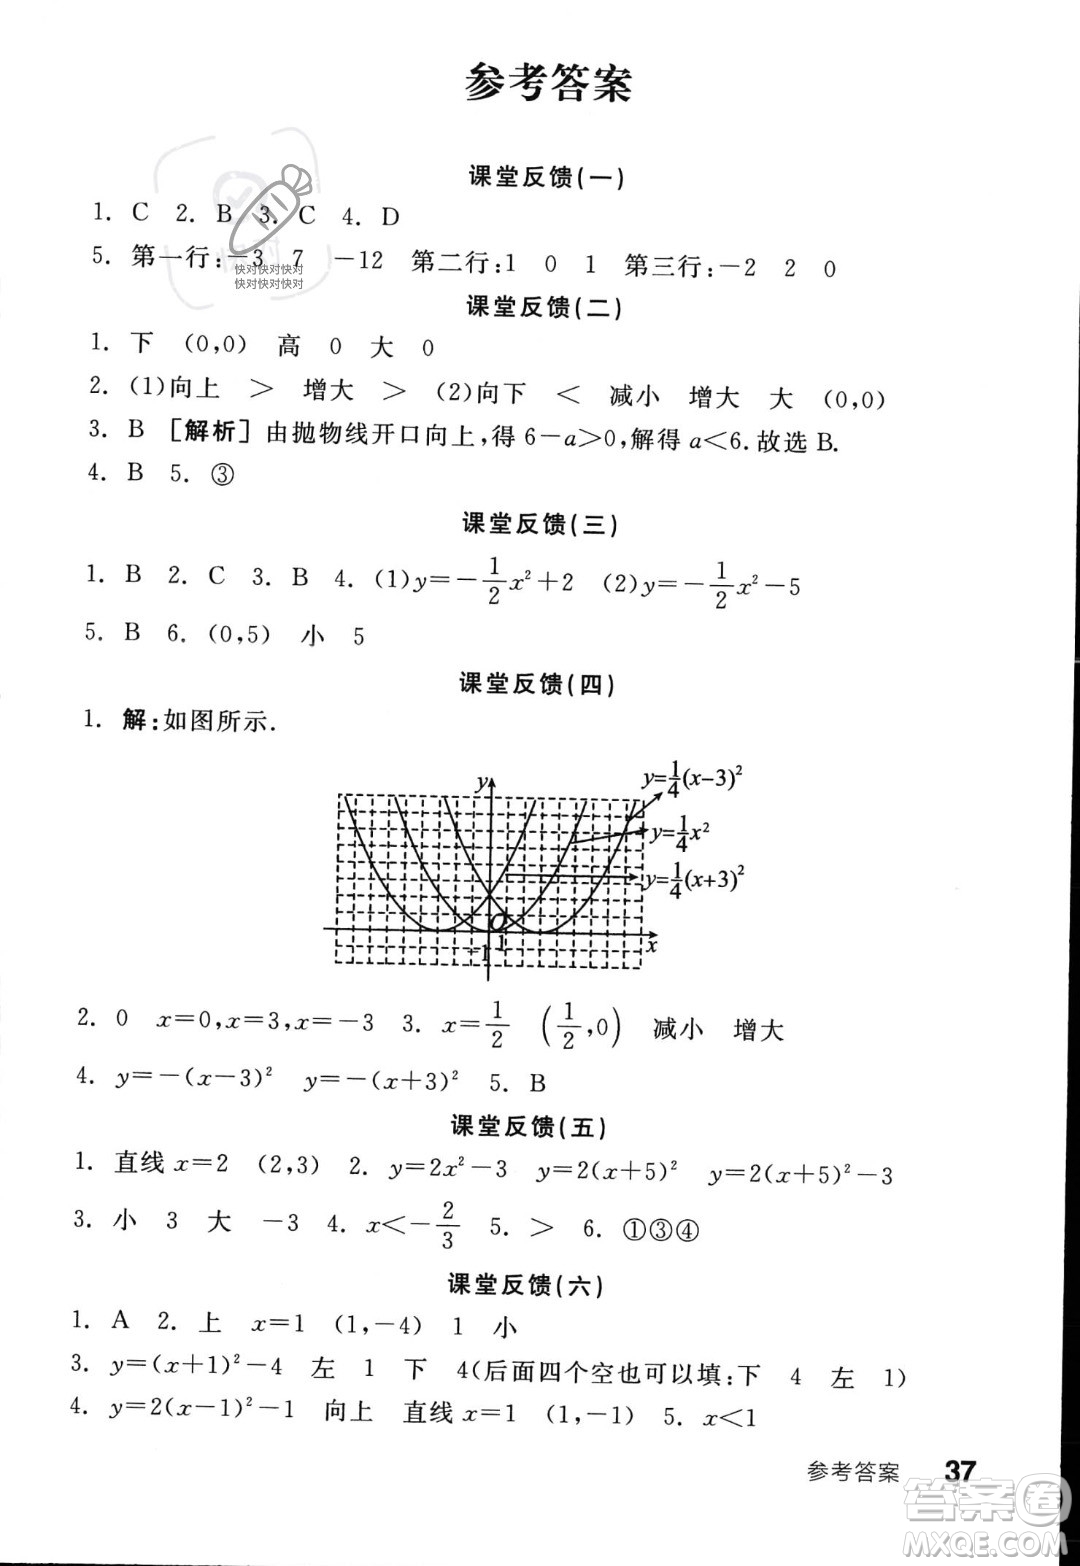 参考答案
课堂反馈(一)
1. C 2. B 3. C 4. D
5. 第一行:-3 7 -12 第二行:1 0 1 第三行:-2 2 0
快对快对快对
快对快对快对
课堂反馈(二)
1. 下 (0,0) 高 0 大 0
2. (1)向上 > 增大 > (2)向下 < 减小 增大 大 (0,0)
3. B [解析]由抛物线开口向上,得 6-a>0,解得 a<6.故选 B.
4. B 5. ③
课堂反馈(三)
1. B 2. C 3. B 4. (1)y=-1/2x²+2 (2)y=-1/2x²-5
5. B 6. (0,5) 小 5
课堂反馈(四)
1. 解:如图所示.
y
y=1/4(x-3)²
y=1/4x²
y=1/4(x+3)²
O
1
x
-1
2. 0 x=0,x=3,x=-3 3. x=1/2 (1/2,0) 减小 增大
4. y=-(x-3)² y=-(x+3)² 5. B
课堂反馈(五)
1. 直线 x=2 (2,3) 2. y=2x²-3 y=2(x+5)² y=2(x+5)²-3
3. 小 3 大 -3 4. x<-2/3 5. > 6. ①③④
课堂反馈(六)
1. A 2. 上 x=1 (1,-4) 1 小
3. y=(x+1)²-4 左 1 下 4(后面四个空也可以填:下 4 左 1)
4. y=2(x-1)²-1 向上 直线 x=1 (1,-1) 5. x<1
参考答案 37
答案卷
MXQE.COM